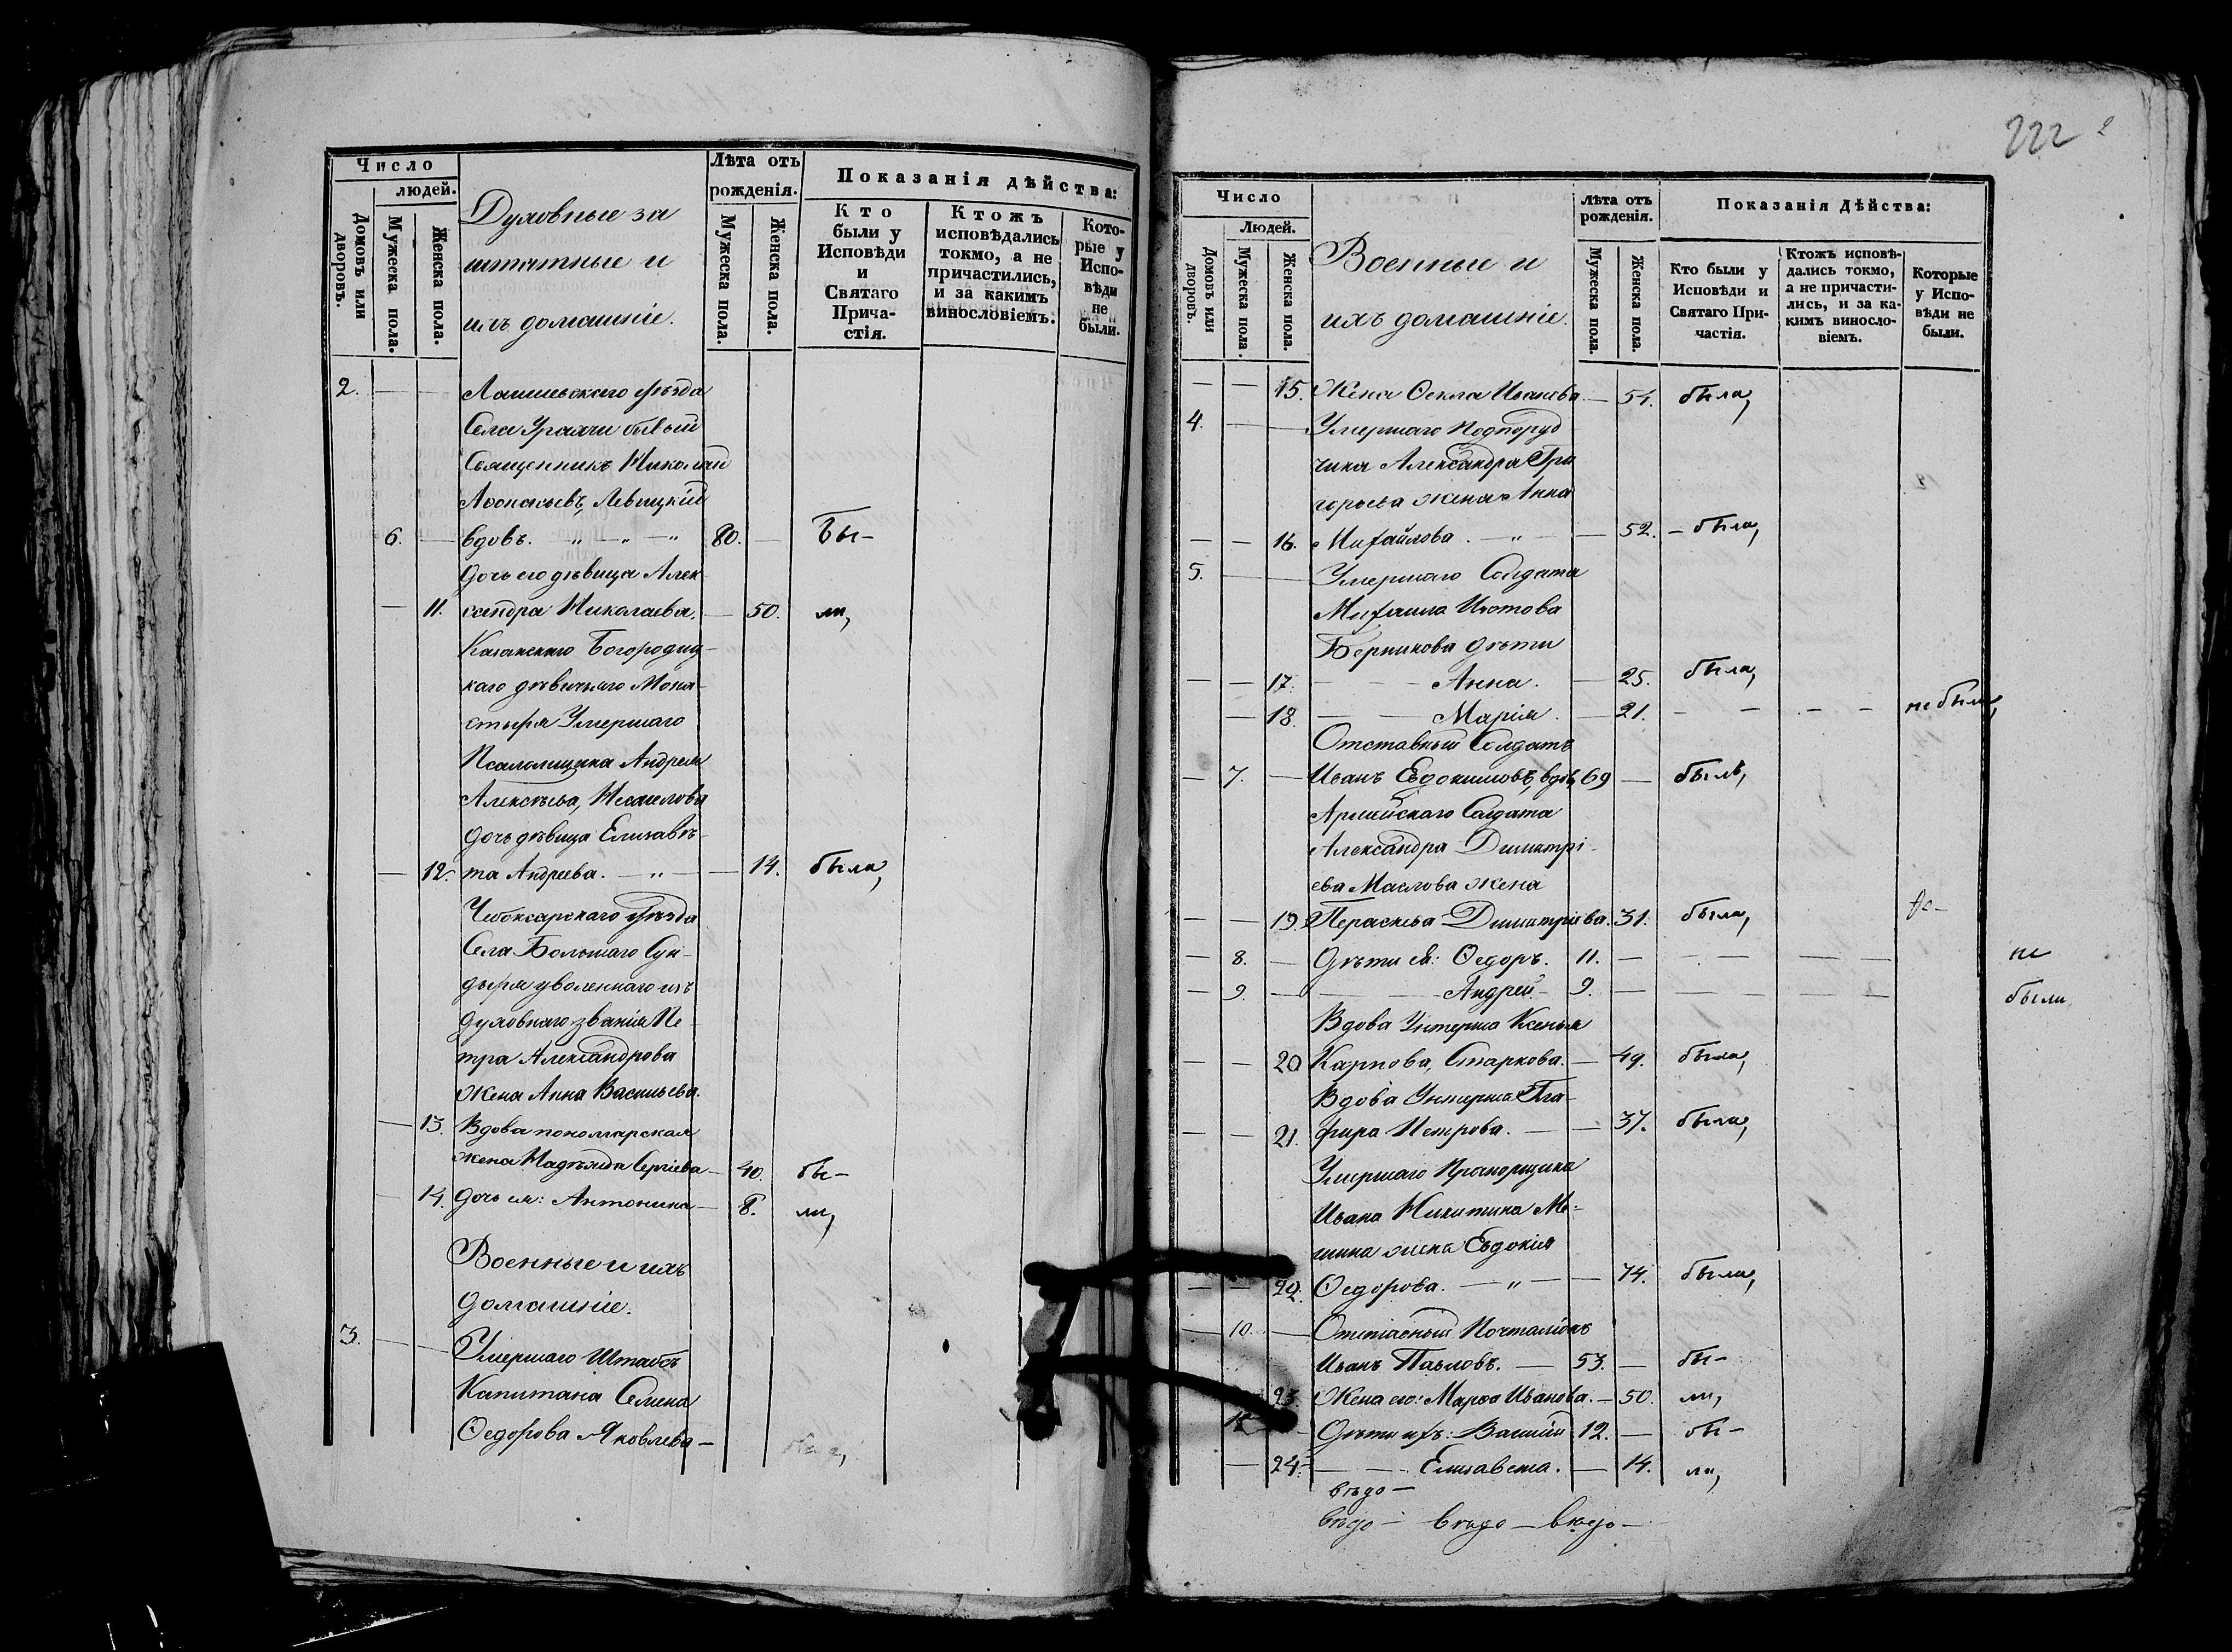 Число
людей.
Домовъ или дворовъ.
Мужеска пола.
Женска пола.
Духовные за
штатные и
ихъ домашніе.
Лѣта отъ
рожденія.
Мужеска пола.
Женска пола.
Показанія дѣйства:
Кто
были у
Исповѣди
и
Святаго
Прича-
стія.
Ктожъ
исповѣдались
токмо, а не
причастились,
и за какимъ
винословіемъ.
Кото-
рые у
Испо-
вѣди
не
были.
2. Лаишевскаго уѣзда
Села Урахчи бывый
Священникъ Николай
Аѳонасьевъ, Левицкій
6. вдовъ. 80. Бы-
Дочь его дѣвица Алек
11. сандра Николаева. 50. ли,
Казанскаго Богородиц-
каго дѣвичьяго Мона-
стыря Умершаго
Псаломщика Андрея
Алексѣева,
дочь дѣвица Елизавѣ-
12. та Андреева. 14. была,
Чебоксарскаго уѣзда
Села Большаго Сун-
дыря уволеннаго изъ
духовнаго званія Пе-
тра Александрова
жена Анна Васильева.
13. Вдова пономарская
жена Надежда Сергіева 40. бы-
14. дочь ея: Антонина 8. ли,
Военные и ихъ
домашніе.
3. Умершаго Штабсъ
Капитана Семена
Ѳедорова Яковлева-
222
Число
Людей.
Домовъ или дворовъ.
Мужеска пола.
Женска пола.
Военные и
ихъ домашніе.
Лѣта отъ
рожденія.
Мужеска пола.
Женска пола.
Показанія Дѣйства:
Кто были у
Исповѣди и
Святаго При-
частія.
Ктожъ исповѣ-
дались токмо,
а не причасти-
лись, и за ка-
кимъ винносло-
віемъ.
Которые
у Испо-
вѣди не
были.
15. Жена Ѳекла Иванова 51. была,
4. Умершаго Подпоруд
чика Александра Гри
горьева жена Анна
16. Михайлова. 52. была,
5. Умершаго Солдата
Михаила Изотова
Берникова дѣти
17. Анна. 25. была,
18. Марія. 21. не была,
Отставный Солдатъ
7. Иванъ Евдокимовъ, вдов, 69 былъ,
Армейскаго Солдата
Александра Димитрі-
ева Маслова жена
19. Параскева Димитріева. 31. была,
8. Дѣти ея: Ѳедоръ. 11. не
9. Андрей. 9. были
Вдова Унтерша Ксенья
20 Карпова, Старкова. 49. была,
Вдова Унтерша Гла-
21. фира Петрова. 37. была,
Умершаго Прапорщика
Ивана Никитина Ме-
шина жена Евдокія
22. Ѳедорова. 74. была,
10. Отставный Почталіонъ
Иванъ Павловъ. 53. бы-
23. Жена его: Марѳа Иванова. 50. ли,
Дѣти ихъ: Василій 12. бы-
24. Елизавета. 14. ли,